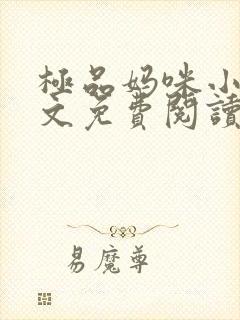 極品妈咪小
文免費閱讀
易魔尊